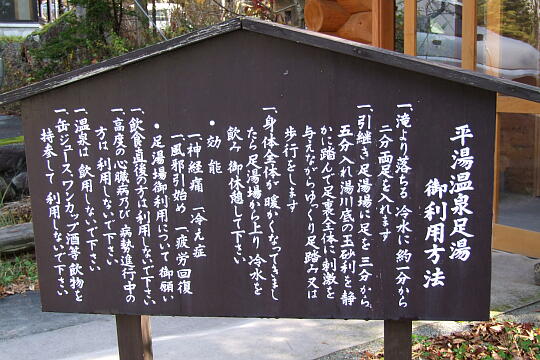 平湯温泉足湯
御利用方法
一、滝より落ちる冷水に約一分から
二分両足を入れます
一、引継き足湯場に足を三分から
五分入れ湯川底の玉砂利を静
かに踏んで足裏全体に刺激を
与えながらゆっくり足踏み又は
歩行とをします
一、身体全体が暖かくなってきまし
たら足湯場から上り冷水を
飲み御休憩して下さい
・効能
一、神経痛 一、冷え症
一、風邪引始め 一、疲労回復
・足湯場御利用について御願い
一、飲食直後の方は利用しないで下さい
一、高度の心臓病乃び病勢進行中の
方は利用しないで下さい
一、温泉は飲用しないで下さい
一、缶ジュース、ワンカップ酒等飲物を
持参して利用しないで下さい